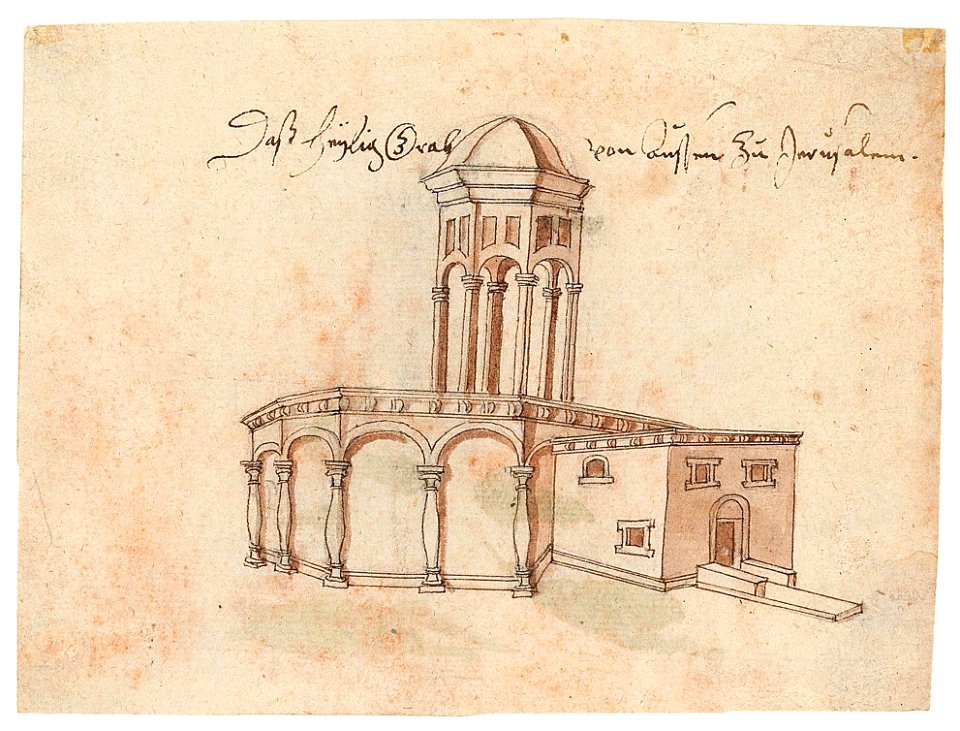 Daß heÿlig Grab von Aussen Zu Jerusalem.